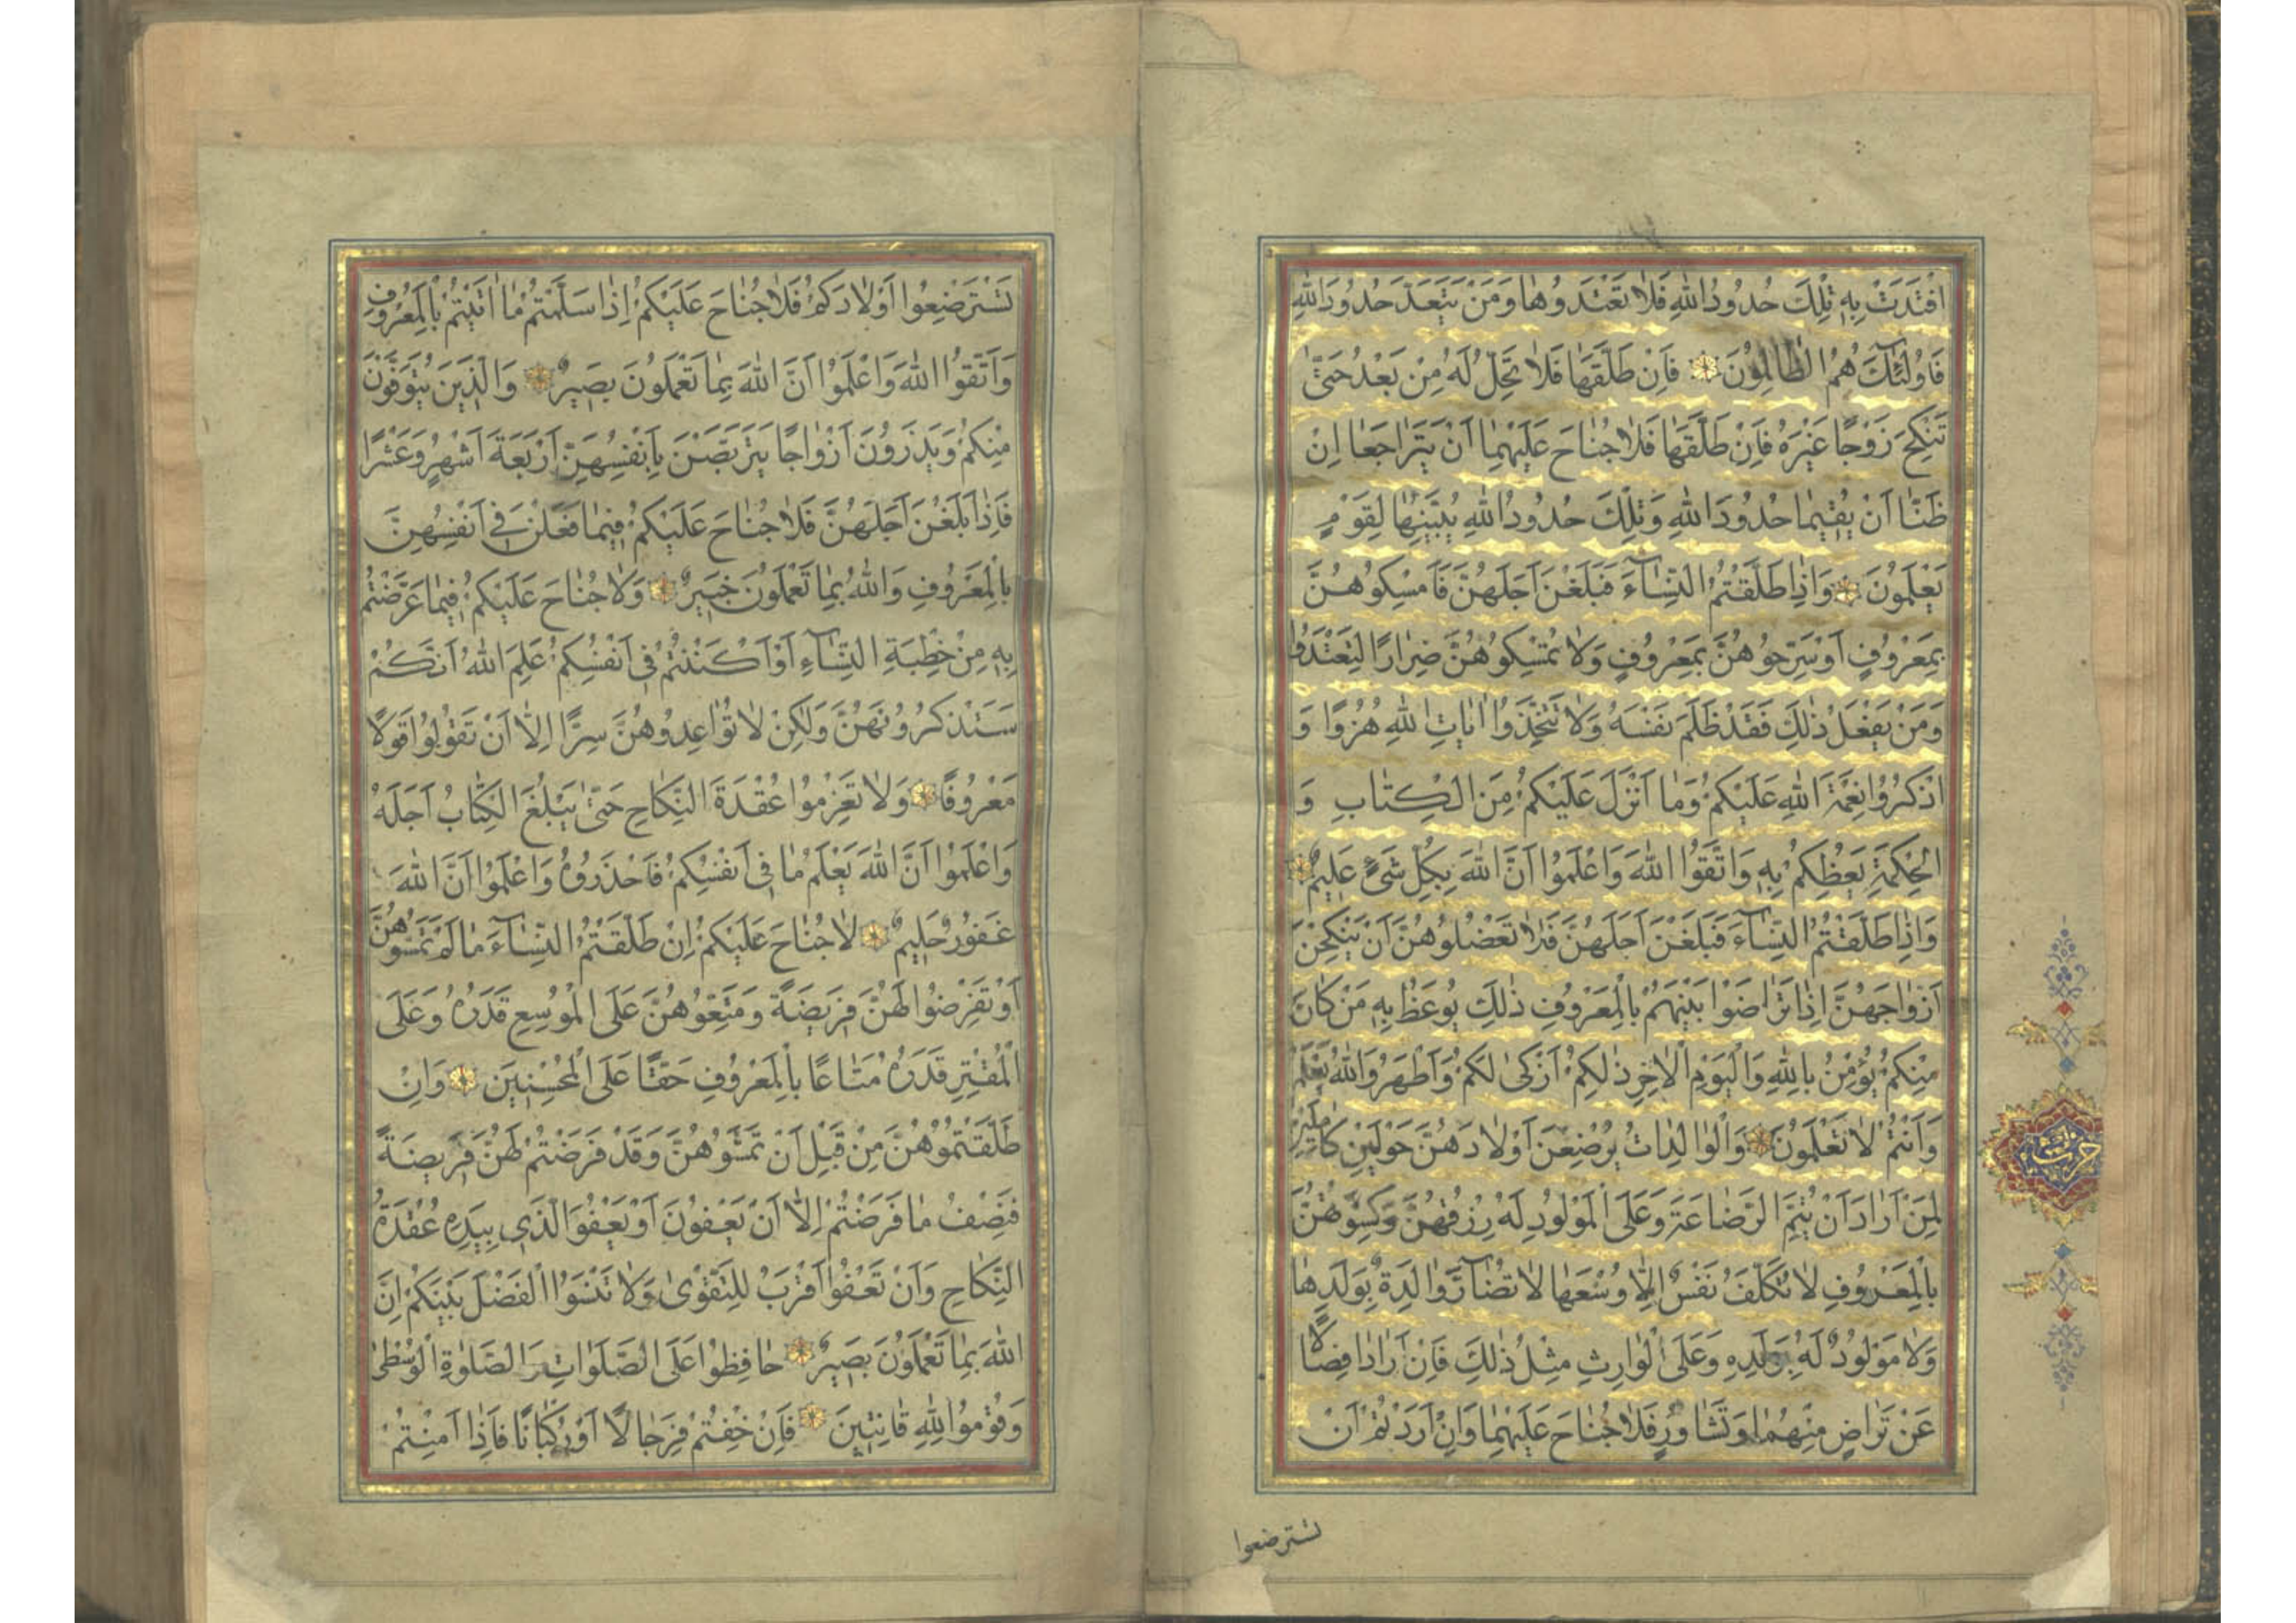 افْتَدَتْ بِهِ تِلْكَ حُدُودُ اللهِ فَلَا تَعْتَدُوهَا وَمَنْ يَتَعَدَّ حُدُودَ اللهِ
فَأُولَٰئِكَ هُمُ الظَّالِمُونَ فَإِنْ طَلَّقَهَا فَلَا تَحِلُّ لَهُ مِنْ بَعْدُ حَتَّىٰ
تَنْكِحَ زَوْجًا غَيْرَهُ فَإِنْ طَلَّقَهَا فَلَا جُنَاحَ عَلَيْهِمَا أَنْ يَتَرَاجَعَا إِنْ
ظَنَّا أَنْ يُقِيمَا حُدُودَ اللهِ وَتِلْكَ حُدُودُ اللهِ يُبَيِّنُهَا لِقَوْمٍ
يَعْلَمُونَ وَإِذَا طَلَّقْتُمُ النِّسَآءَ فَبَلَغْنَ أَجَلَهُنَّ فَأَمْسِكُوهُنَّ
بِمَعْرُوفٍ أَوْ سَرِّحُوهُنَّ بِمَعْرُوفٍ وَلَا تُمْسِكُوهُنَّ ضِرَارًا لِتَعْتَدُوا
وَمَنْ يَفْعَلْ ذَٰلِكَ فَقَدْ ظَلَمَ نَفْسَهُ وَلَا تَتَّخِذُوا آيَاتِ اللهِ هُزُوًا وَ
اذْكُرُوا نِعْمَةَ اللهِ عَلَيْكُمْ وَمَا أَنْزَلَ عَلَيْكُمْ مِنَ الْكِتَابِ وَ
الْحِكْمَةِ يَعِظُكُمْ بِهِ وَاتَّقُوا اللهَ وَاعْلَمُوا أَنَّ اللهَ بِكُلِّ شَيْءٍ عَلِيمٌ
وَإِذَا طَلَّقْتُمُ النِّسَآءَ فَبَلَغْنَ أَجَلَهُنَّ فَلَا تَعْضُلُوهُنَّ أَنْ يَنْكِحْنَ
أَزْوَاجَهُنَّ إِذَا تَرَاضَوْا بَيْنَهُمْ بِالْمَعْرُوفِ ذَٰلِكَ يُوعَظُ بِهِ مَنْ كَانَ
مِنْكُمْ يُؤْمِنُ بِاللهِ وَالْيَوْمِ الْآخِرِ ذَٰلِكُمْ أَزْكَىٰ لَكُمْ وَأَطْهَرُ وَاللهُ يَعْلَمُ
وَأَنْتُمْ لَا تَعْلَمُونَ وَالْوَالِدَاتُ يُرْضِعْنَ أَوْلَادَهُنَّ حَوْلَيْنِ كَامِلَيْنِ
لِمَنْ أَرَادَ أَنْ يُتِمَّ الرَّضَاعَةَ وَعَلَى الْمَوْلُودِ لَهُ رِزْقُهُنَّ وَكِسْوَتُهُنَّ
بِالْمَعْرُوفِ لَا تُكَلَّفُ نَفْسٌ إِلَّا وُسْعَهَا لَا تُضَآرَّ وَالِدَةٌ بِوَلَدِهَا
وَلَا مَوْلُودٌ لَهُ بِوَلَدِهِ وَعَلَى الْوَارِثِ مِثْلُ ذَٰلِكَ فَإِنْ أَرَادَا فِصَالًا
عَنْ تَرَاضٍ مِنْهُمَا وَتَشَاوُرٍ فَلَا جُنَاحَ عَلَيْهِمَا وَإِنْ أَرَدْتُمْ أَنْ
تسترضعوا
حزب
تَسْتَرْضِعُوا أَوْلَادَكُمْ فَلَا جُنَاحَ عَلَيْكُمْ إِذَا سَلَّمْتُمْ مَا آتَيْتُمْ بِالْمَعْرُوفِ
وَاتَّقُوا اللهَ وَاعْلَمُوا أَنَّ اللهَ بِمَا تَعْمَلُونَ بَصِيرٌ وَالَّذِينَ يُتَوَفَّوْنَ
مِنْكُمْ وَيَذَرُونَ أَزْوَاجًا يَتَرَبَّصْنَ بِأَنْفُسِهِنَّ أَرْبَعَةَ أَشْهُرٍ وَعَشْرًا
فَإِذَا بَلَغْنَ أَجَلَهُنَّ فَلَا جُنَاحَ عَلَيْكُمْ فِيمَا فَعَلْنَ فِي أَنْفُسِهِنَّ
بِالْمَعْرُوفِ وَاللهُ بِمَا تَعْمَلُونَ خَبِيرٌ وَلَا جُنَاحَ عَلَيْكُمْ فِيمَا عَرَّضْتُمْ
بِهِ مِنْ خِطْبَةِ النِّسَآءِ أَوْ أَكْنَنْتُمْ فِي أَنْفُسِكُمْ عَلِمَ اللهُ أَنَّكُمْ
سَتَذْكُرُونَهُنَّ وَلَٰكِنْ لَا تُوَاعِدُوهُنَّ سِرًّا إِلَّا أَنْ تَقُولُوا قَوْلًا
مَعْرُوفًا وَلَا تَعْزِمُوا عُقْدَةَ النِّكَاحِ حَتَّىٰ يَبْلُغَ الْكِتَابُ أَجَلَهُ
وَاعْلَمُوا أَنَّ اللهَ يَعْلَمُ مَا فِي أَنْفُسِكُمْ فَاحْذَرُوهُ وَاعْلَمُوا أَنَّ اللهَ
غَفُورٌ حَلِيمٌ لَا جُنَاحَ عَلَيْكُمْ إِنْ طَلَّقْتُمُ النِّسَآءَ مَا لَمْ تَمَسُّوهُنَّ
أَوْ تَفْرِضُوا لَهُنَّ فَرِيضَةً وَمَتِّعُوهُنَّ عَلَى الْمُوسِعِ قَدَرُهُ وَعَلَى
الْمُقْتِرِ قَدَرُهُ مَتَاعًا بِالْمَعْرُوفِ حَقًّا عَلَى الْمُحْسِنِينَ وَإِنْ
طَلَّقْتُمُوهُنَّ مِنْ قَبْلِ أَنْ تَمَسُّوهُنَّ وَقَدْ فَرَضْتُمْ لَهُنَّ فَرِيضَةً
فَنِصْفُ مَا فَرَضْتُمْ إِلَّا أَنْ يَعْفُونَ أَوْ يَعْفُوَا الَّذِي بِيَدِهِ عُقْدَةُ
النِّكَاحِ وَأَنْ تَعْفُوا أَقْرَبُ لِلتَّقْوَىٰ وَلَا تَنْسَوُا الْفَضْلَ بَيْنَكُمْ إِنَّ
اللهَ بِمَا تَعْمَلُونَ بَصِيرٌ حَافِظُوا عَلَى الصَّلَوَاتِ وَالصَّلَوٰةِ الْوُسْطَىٰ
وَقُومُوا لِلهِ قَانِتِينَ فَإِنْ خِفْتُمْ فَرِجَالًا أَوْ رُكْبَانًا فَإِذَا أَمِنْتُمْ